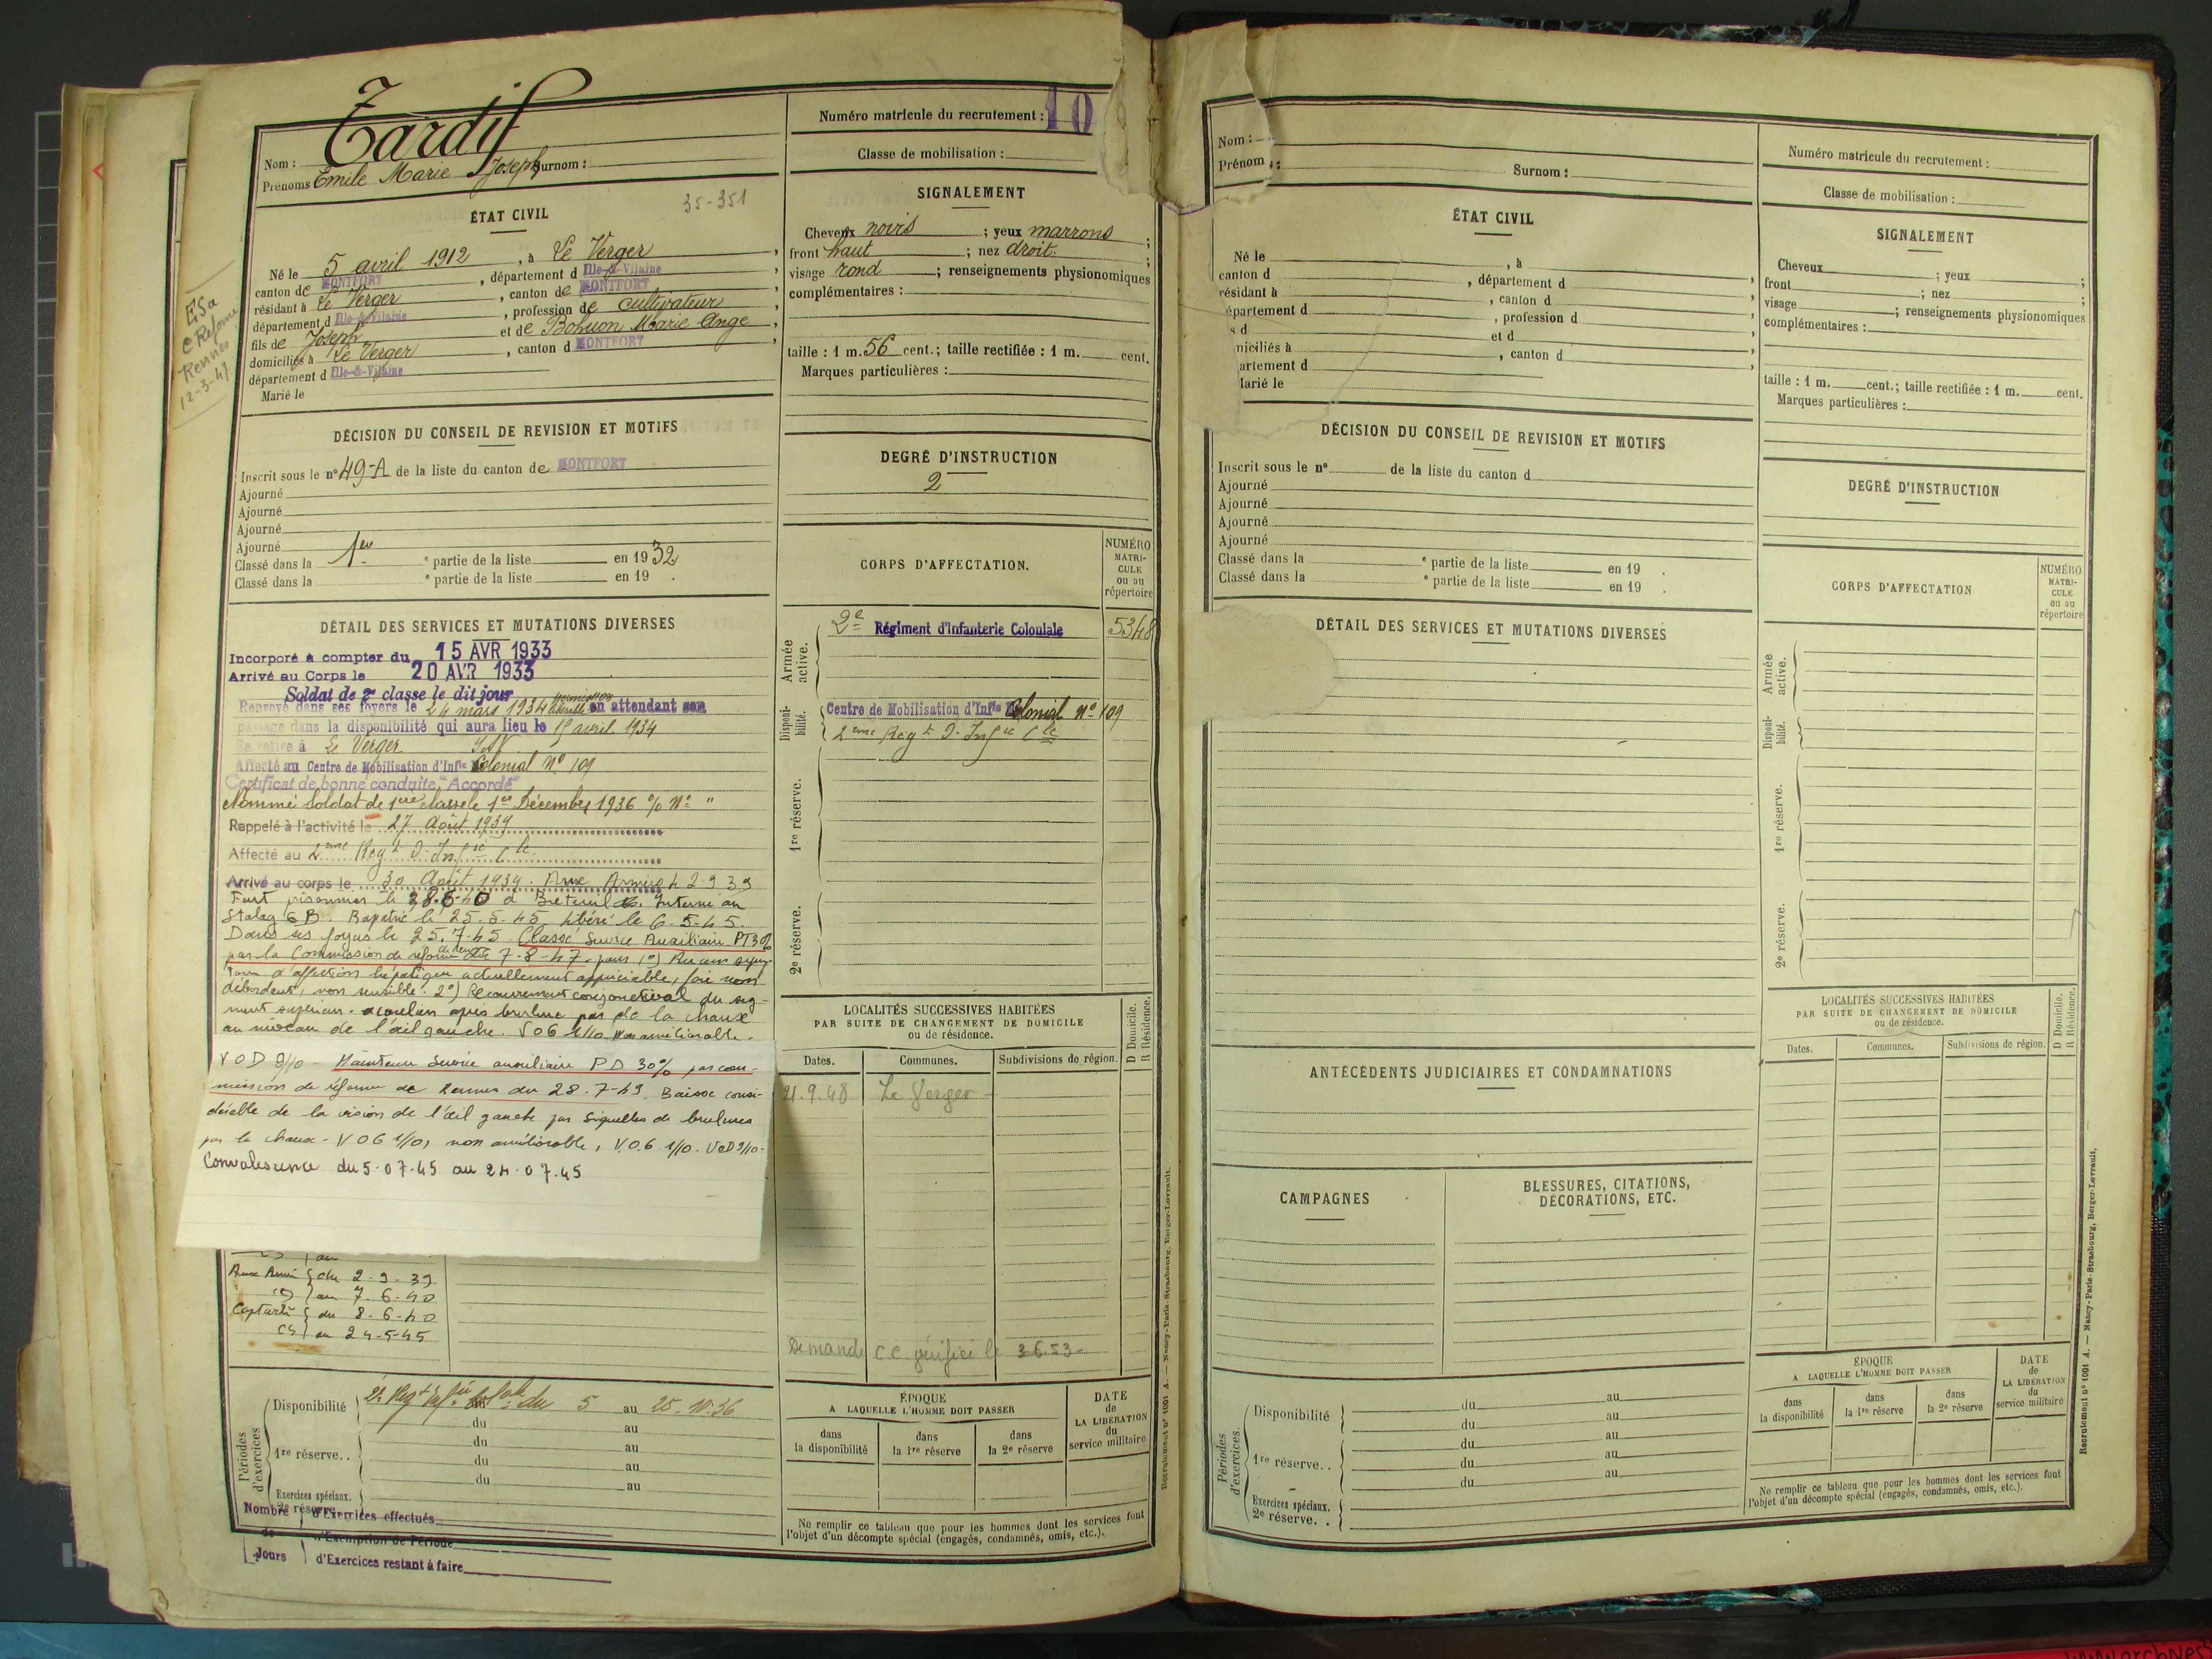 Tardif
Nom :
Prénoms Emile Marie Joseph Surnom :
Numéro matricule du recrutement : 10
Classe de mobilisation :
35-351
ÉTAT CIVIL
Né le 5 avril 1912, à Le Verger,
canton de MONTFORT, département d Ille-&-Vilaine
résidant à Le Verger, canton de MONTFORT,
département d Ille-&-Vilaine, profession de cultivateur,
fils de Joseph et de Bohuon Marie Ange,
domiciliés à Le Verger, canton d MONTFORT,
département d Ille-&-Vilaine
Marié le
ESa
C Réforme
Rennes
12-3-47
DÉCISION DU CONSEIL DE REVISION ET MOTIFS
Inscrit sous le n° 49-A de la liste du canton de MONTFORT
Ajourné
Ajourné
Ajourné
Ajourné
Classé dans la 1er e partie de la liste en 1932
Classé dans la e partie de la liste en 19 .
DÉTAIL DES SERVICES ET MUTATIONS DIVERSES
Incorporé à compter du 15 AVR 1933
Arrivé au Corps le 20 AVR 1933
Soldat de 2e classe le dit jour
Renvoyé dans ses foyers le 24 mars 1934 permission libérable en attendant son
passage dans la disponibilité qui aura lieu le 15 avril 1934
Se retire à Le Verger I&V
Affecté au Centre de Mobilisation d'Infie Colonial N° 109
Certificat de bonne conduite "Accordé"
Nommé Soldat de 1ère classe le 1er Décembre 1936 % N° "
Rappelé à l'activité le 27 Août 1939
Affecté au 2ème Regt d'Infie Cle
Arrivé au corps le 30 Août 1939. Aux Armées 2 9 39
Fait prisonnier le 8.6.40 à Breteuil. Interné au
Stalag 6 B. Rapatrié le 25.5.45 libéré le 6.5.45.
Dans ses foyers le 25.7.45 Classé Service Auxiliaire PT 30%
par la Commission de réforme de Rennes du 7-8-47 pour 1°) Aucun symp-
tome d'affection hépatique actuellement appréciable, foie non
débordant, non sensible. 2°) Recouvrement conjonctival du seg-
ment supérieur oculaire après brulure par de la chaux
au niveau de l'œil gauche. VOG 1/10 non améliorable.
VOD 9/10 - Maintenu service auxiliaire P D 30% par com-
mission de réforme de Rennes du 28.7-49. Baisse consi-
dérable de la vision de l'œil gauche par séquelles de brulures
par la chaux - VOG 1/10, non améliorable, V.O.G 1/10. VOD 9/10-
Convalescence du 5.07.45 au 24.07.45
au
Aux Armées du 2-9-39
(C) au 7-6-40
Captivité du 8-6-40
CS au 24-5-45
Périodes d'exercices
Disponibilité 2e Regt Infie Colale du 5 au 25.10.36
du au
1re réserve.. du au
du au
du au
Exercices spéciaux.
2e réserve
Nombre de Jours
d'Exercices effectués
d'Exemption de Période
d'Exercices restant à faire
SIGNALEMENT
Cheveux noirs ; yeux marrons ;
front haut ; nez droit. ;
visage rond ; renseignements physionomiques
complémentaires :
taille : 1 m. 56 cent.; taille rectifiée : 1 m. cent.
Marques particulières :
DEGRÉ D'INSTRUCTION
2
CORPS D'AFFECTATION.
NUMÉRO MATRI-CULE ou au répertoire
Armée active.
2e Régiment d'Infanterie Coloniale 5348
Disponi-bilité.
Centre de Mobilisation d'Infie Colonial N° 109
2ème Regt d'Infie Cle
1re réserve.
2e réserve.
LOCALITÉS SUCCESSIVES HABITÉES
PAR SUITE DE CHANGEMENT DE DOMICILE
ou de résidence.
D Domicile.
R Résidence.
Dates. Communes. Subdivisions de région.
21.9.48 Le Verger
Demande C C vérifiée le 3 6 53-
ÉPOQUE
A LAQUELLE L'HOMME DOIT PASSER
dans la disponibilité
dans la 1re réserve
dans la 2e réserve
DATE de LA LIBÉRATION du service militaire
Ne remplir ce tableau que pour les hommes dont les services font
l'objet d'un décompte spécial (engagés, condamnés, omis, etc.).
Recrutement n° 1001 A. — Nancy-Paris-Strasbourg, Berger-Levrault.
Nom :
Prénom :
Surnom :
Numéro matricule du recrutement :
Classe de mobilisation :
ÉTAT CIVIL
Né le , à ,
canton d , département d
résidant à , canton d ,
épartement d , profession d
s d et d ,
niciliés à , canton d ,
artement d
larié le
SIGNALEMENT
Cheveux ; yeux ;
front ; nez ;
visage ; renseignements physionomiques
complémentaires :
taille : 1 m. cent.; taille rectifiée : 1 m. cent.
Marques particulières :
DÉCISION DU CONSEIL DE REVISION ET MOTIFS
Inscrit sous le n° de la liste du canton d
Ajourné
Ajourné
Ajourné
Ajourné
Classé dans la e partie de la liste en 19 .
Classé dans la e partie de la liste en 19 .
DEGRÉ D'INSTRUCTION
DÉTAIL DES SERVICES ET MUTATIONS DIVERSES
CORPS D'AFFECTATION
NUMÉRO MATRI-CULE ou au répertoire
Armée active.
Disponi-bilité.
1re réserve.
2e réserve.
ANTÉCÉDENTS JUDICIAIRES ET CONDAMNATIONS
CAMPAGNES
BLESSURES, CITATIONS,
DÉCORATIONS, ETC.
LOCALITÉS SUCCESSIVES HABITÉES
PAR SUITE DE CHANGEMENT DE DOMICILE
ou de résidence.
D Domicile.
R Résidence.
Dates. Communes. Subdivisions de région.
Périodes d'exercices.
Disponibilité du au
du au
1re réserve.. du au
du au
du au
Exercices spéciaux.
2e réserve. .
ÉPOQUE
A LAQUELLE L'HOMME DOIT PASSER
dans la disponibilité
dans la 1re réserve
dans la 2e réserve
DATE de LA LIBÉRATION du service militaire
Ne remplir ce tableau que pour les hommes dont les services font
l'objet d'un décompte spécial (engagés, condamnés, omis, etc.).
Recrutement n° 1001 A. — Nancy-Paris-Strasbourg, Berger-Levrault.